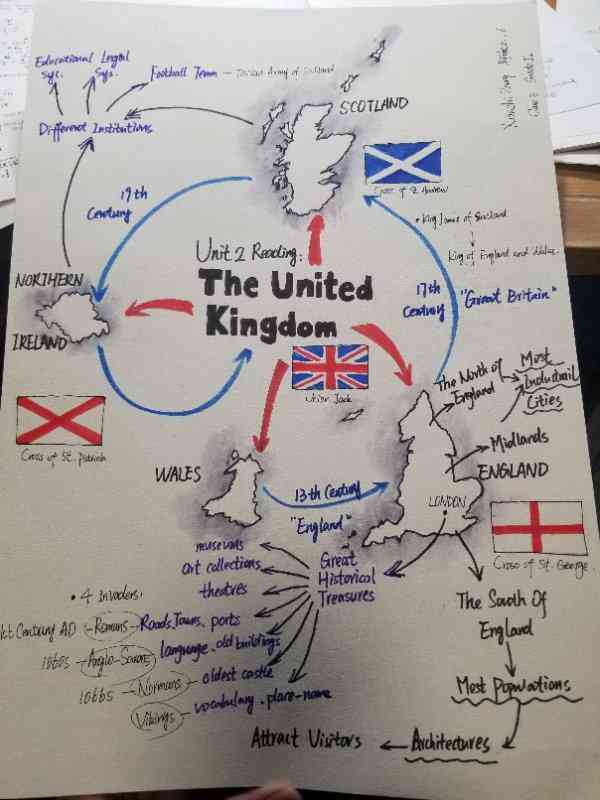 Educational
Sys.
Legal
Sys.
Football Team — of Scotland
Different Institutions
SCOTLAND
Cross of St. Andrew
19th
Century
• King James of Scotland
King of England and Wales
Unit 2 Reading:
The United
Kingdom
Union Jack
17th
Century
"Great Britain"
NORTHERN
IRELAND
Cross of St. Patrick
The North of
England
Most
Industrial
Cities
Midlands
ENGLAND
LONDON
Cross of St. George
WALES
13th Century
"England"
Great
Historical
Treasures
museums
art collections
theatres
• 4 Invaders:
1st Century AD Romans Roads, Towns, ports
Anglo-Saxons language, old buildings
Normans oldest castle
Vikings vocabulary, place-name
The South Of
England
Most Populations
Architectures
Attract Visitors